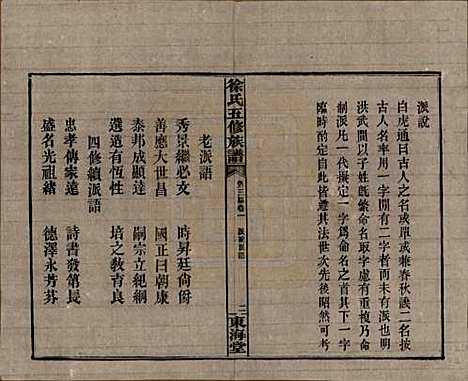 派說
白虎通曰古人之名或單或兼春秋譏二名按
古人名率用一字間有二字者而未有派也明
洪武間以子姓旣繁命名取字慮有重複乃命
制派凡一代擬定一字爲命名之字而世次先後
臨時酌定亦可考
徐氏五修族譜
東海堂
老派語
秀景繼必文
時昇廷尙俯
善應大世昌
國正日朝康
泰邦成顯達
嗣宗立紀綱
選造有恆性
培之敎育良
四修續派語
忠孝傳家遠
詩書發第長
盛名光祖緖
德澤永芳芬